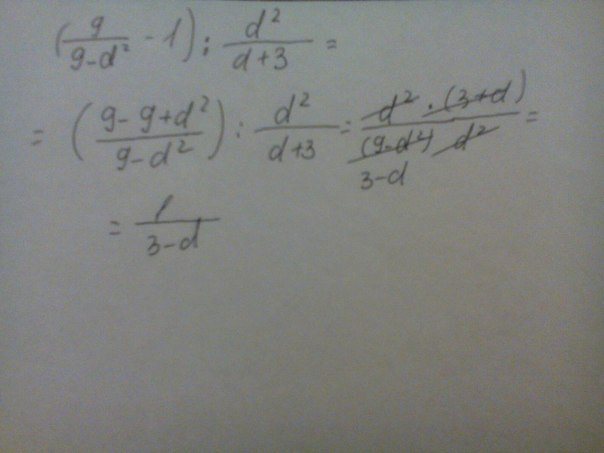 (9/(9-d²) - 1) : d²/(d+3) =
= ((9-9+d²)/(9-d²)) : d²/(d+3) = (d²·(3+d))/((9-d²) d²) =
3-d
= 1/(3-d)